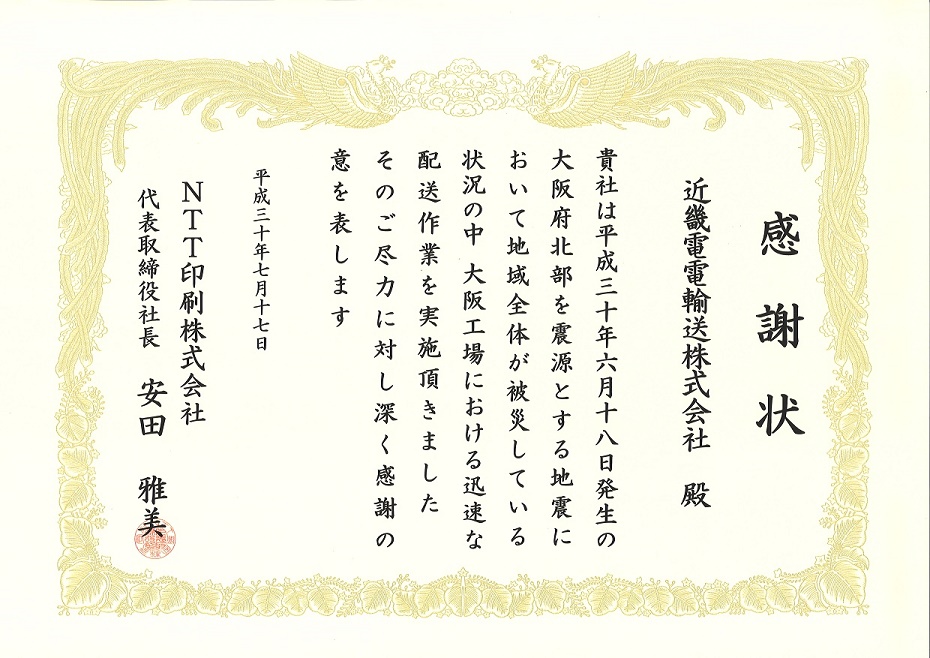 感謝状
近畿電電輸送株式会社 殿
貴社は平成三十年六月十八日発生の
大阪府北部を震源とする地震に
おいて地域全体が被災している
状況の中 大阪工場における迅速な
配送作業を実施頂きました
そのご尽力に対し深く感謝の
意を表します
平成三十年七月十七日
NTT印刷株式会社
代表取締役社長 安田 雅美